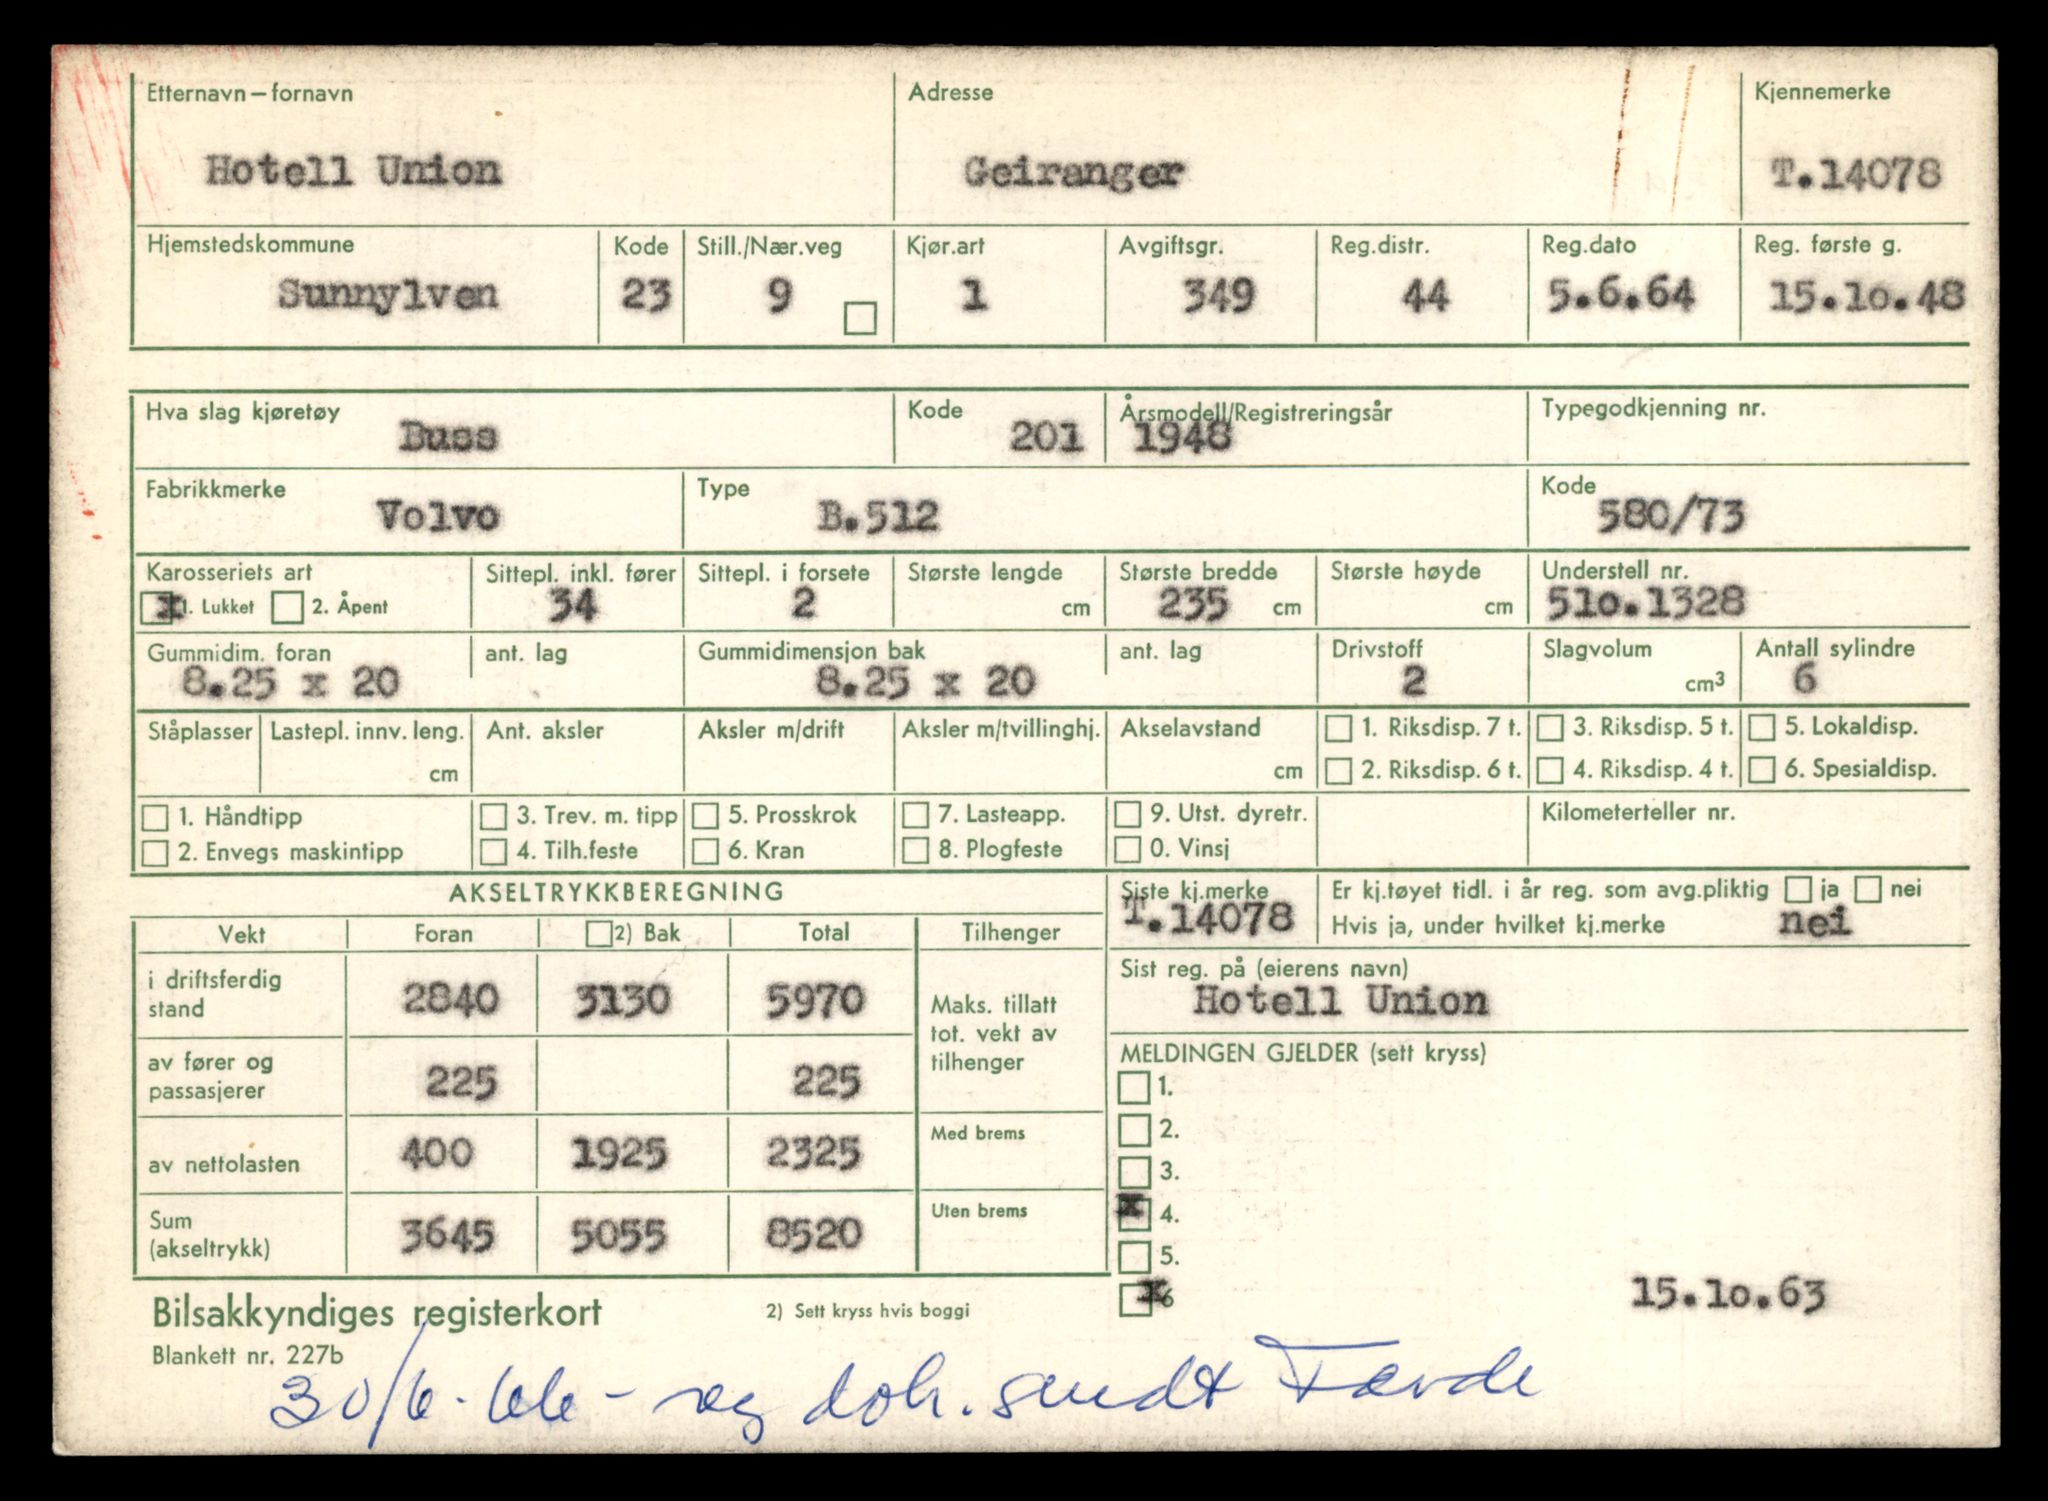 Etternavn – fornavn Adresse Kjennemerke
Hotell Union Geiranger T.14078
Hjemstedskommune Kode Still./Nær.veg Kjør.art Avgiftsgr. Reg.distr. Reg.dato Reg. første g.
Sunnylven 23 9 1 349 44 5.6.64 15.10.48
Hva slag kjøretøy Kode Årsmodell/Registreringsår Typegodkjenning nr.
Buss 201 1948
Fabrikkmerke Type Kode
Volvo B.512 580/73
Karosseriets art Sittepl. inkl. fører Sittepl. i forsete Største lengde Største bredde Største høyde Understell nr.
x 1. Lukket 2. Åpent 34 2 cm 235 cm cm 510.1328
Gummidim. foran ant. lag Gummidimensjon bak ant. lag Drivstoff Slagvolum Antall sylindre
8.25 x 20 8.25 x 20 2 cm3 6
Ståplasser Lastepl. innv. leng. Ant. aksler Aksler m/drift Aksler m/tvillinghj. Akselavstand 1. Riksdisp. 7 t. 3. Riksdisp. 5 t. 5. Lokaldisp.
cm cm 2. Riksdisp. 6 t. 4. Riksdisp. 4 t. 6. Spesialdisp.
1. Håndtipp 3. Trev. m. tipp 5. Prosskrok 7. Lasteapp. 9. Utst. dyretr. Kilometerteller nr.
2. Envegs maskintipp 4. Tilh.feste 6. Kran 8. Plogfeste 0. Vinsj
AKSELTRYKKBEREGNING
Vekt Foran 2) Bak Total Tilhenger
i driftsferdig stand 2840 3130 5970 Maks. tillatt tot. vekt av tilhenger
av fører og passasjerer 225 225
av nettolasten 400 1925 2325 Med brems
Sum (akseltrykk) 3645 5055 8520 Uten brems
Siste kj.merke Er kj.tøyet tidl. i år reg. som avg.pliktig ja nei
T.14078 Hvis ja, under hvilket kj.merke nei
Sist reg. på (eierens navn)
Hotell Union
MELDINGEN GJELDER (sett kryss)
1.
2.
3.
x 4.
5.
x 6 15.10.63
Bilsakkyndiges registerkort 2) Sett kryss hvis boggi
Blankett nr. 227b
30/6-66 - reg dok. sendt Førde